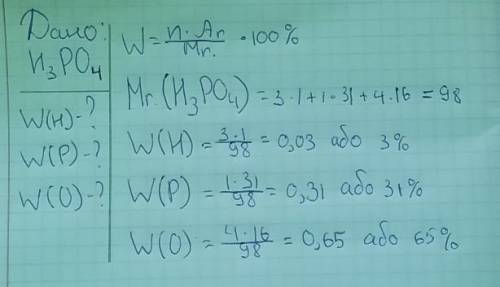 Дано:
H₃PO₄
W(H)-?
W(P)-?
W(O)-?
W = n·Ar/Mr · 100%
Mr(H₃PO₄) = 3·1+1·31+4·16 = 98
W(H) = 3·1/98 = 0,03 або 3%
W(P) = 1·31/98 = 0,31 або 31%
W(O) = 4·16/98 = 0,65 або 65%